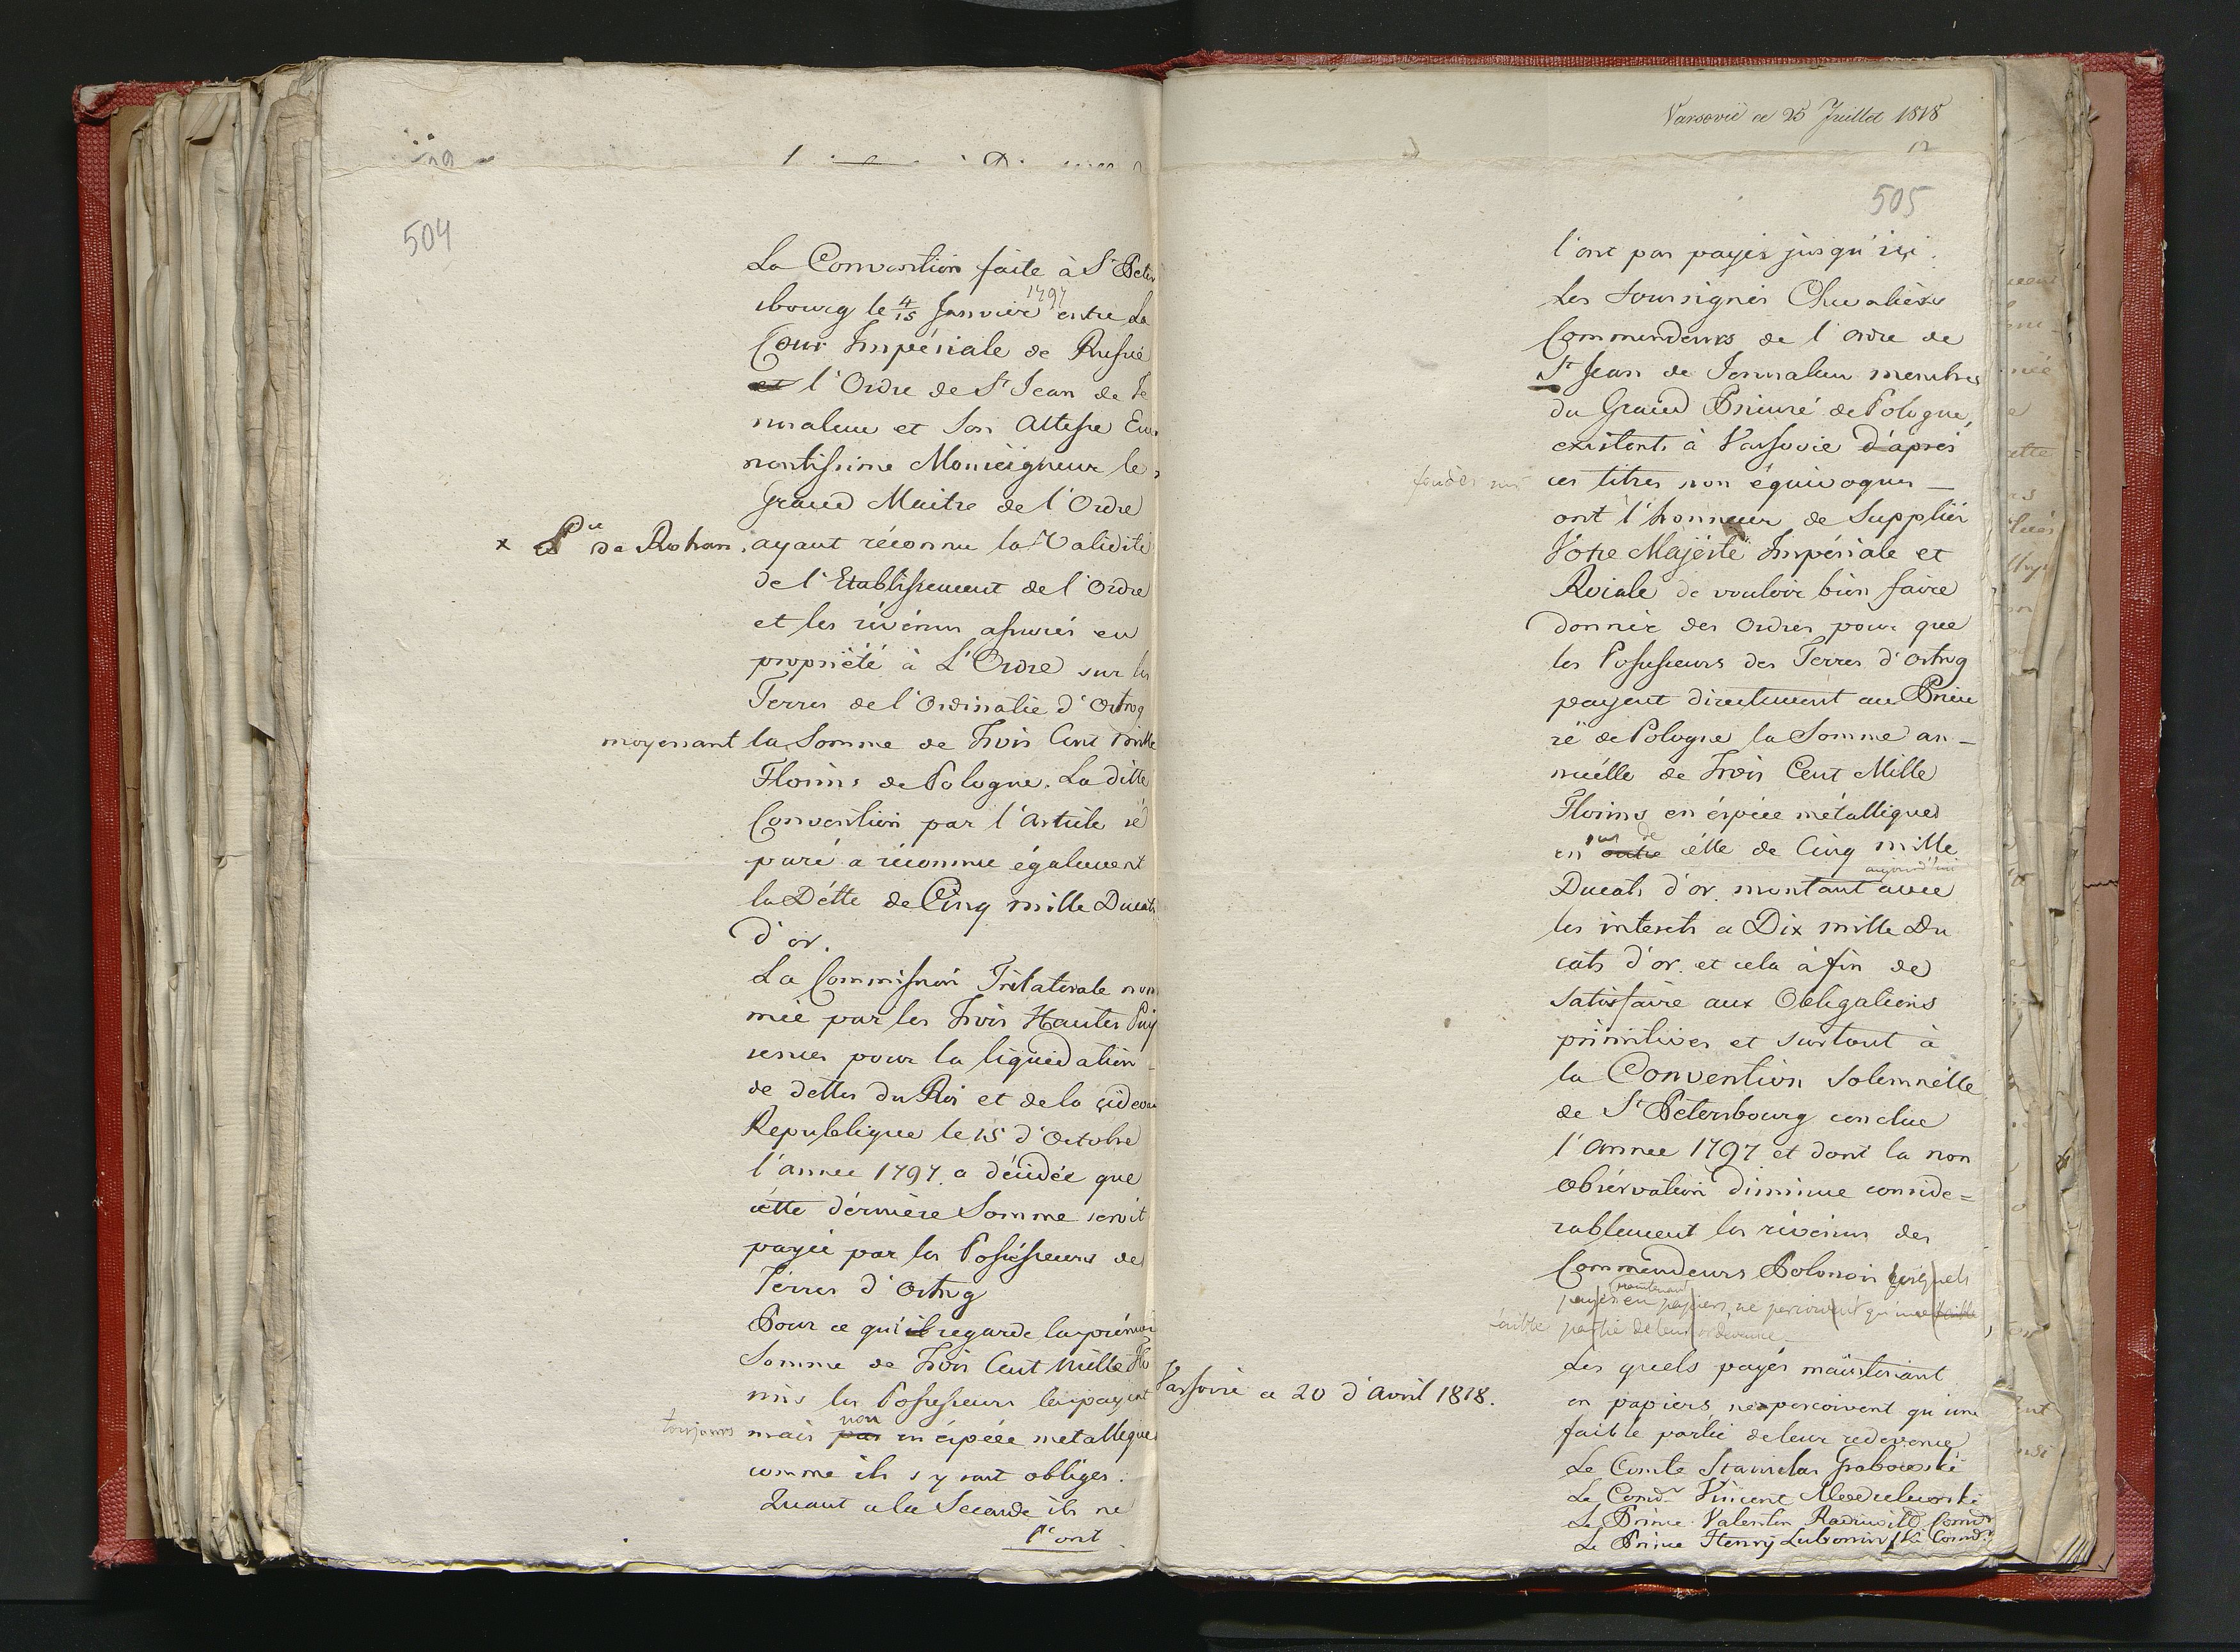 504
La Convention faite à St Peter
sbourg le 4/15 Janvier 1797 entre la
Cour Impériale de Russie
et l'Ordre de St Jean de Je
rusalem et Son Altesse Emi
nentissime Monseigneur le
Grand Maitre de l'Ordre
x Pce de Rohan. ayant réconnu la Validité
de l'Etablissement de l'Ordre
et les révénus assurés en
propriété à L'Ordre sur les
Terres de l'Ordinatie d'Ostrog
moyenant la Somme de Trois Cent mille
Florins de Pologne. La ditte
Convention par l'Article sé
paré a réconnu également
la Détte de Cinq mille Ducats
d'or.
La Commission Trilaterale nom
mée par les Trois Hautes Puis
sences pour la liquidation
de dettes du Roi et de la cidevant
Republique le 15 d'Octobre
l'année 1797. a décidée que
cétte dérnière Somme seroit
payée par les Possésseurs des
Térres d'Ostrog
Pour ce qui regarde la prémière
Somme de Trois Cent Mille Flo
rins les Possesseurs les payent
toujours mais pas non en éspéce metallique
comme ils s'y sont obligés.
Quant a la Seconde ils ne
l'ont
Varsovie ce 25 Juillet 1818
12
505
l'ont pas payés jusqu'içi.
Les Soussignés Chevaliers
Commendeurs de l'Ordre de
St Jean de Jerusalem membres
du Grand Prieuré de Pologne,
existents à Varsovie d'après
fondés sur ces titres non équivoques —
ont l'honneur de Supplier
Votre Majésté Impériale et
Roiale de vouloir bien faire
donner des Ordres pour que
les Possesseurs des Terres d'Ostrog
payent directement au Prieu
ré de Pologne la Somme an-
nuélle de Trois Cent Mille
Florins en éspéce métallique
en outre sus de célle de Cinq mille
Ducats d'or. montant aujourd'hui avec
les interets a Dix mille Du
cats d'or. et cela à fin de
satisfaire aux Obligations
primitives et surtout à
la Convention Solemnélle
de St Pétersbourg conclue
l'Annee 1797 et dont la non
obsérvation diminue conside=
rablement les révénus des
Commendeurs Polonois lesquels
payés maintenant en papiers, ne perçoivent qu'une faible
faible partie de leur redevence
Les quels payés maintenant
en papiers ne perçoivent qu'une
faible partie de leur redevence
Varsovie ce 20 d'Avril 1818.
Le Comte Stanislas Grabowski
Le Comdr Vincent
Le Prince Valentin Radziwill Comdr
Le Prince Henry Lubomirski Comdr